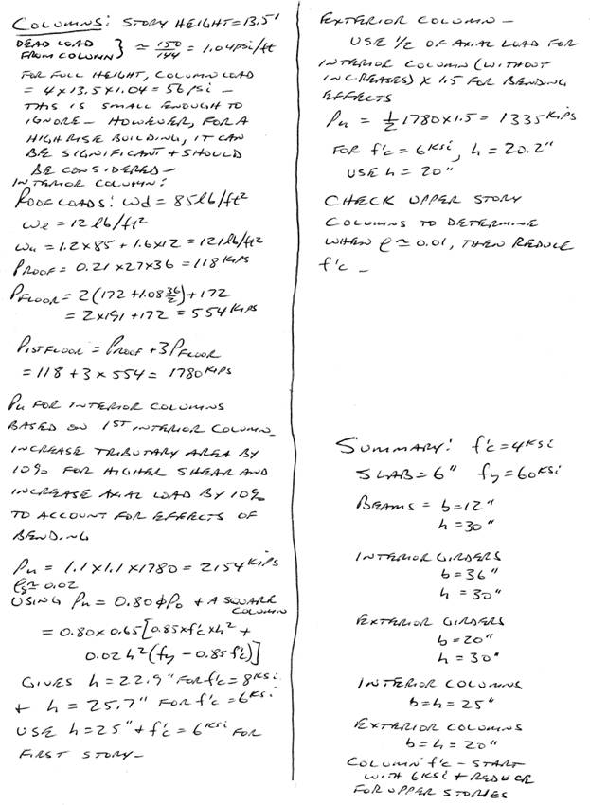 COLUMNS: STORY HEIGHT = 13.5'
DEAD LOAD
FROM COLUMN } ≃ 150/144 = 1.04 psi/ft
FOR FULL HEIGHT, COLUMN LOAD
= 4 x 13.5 x 1.04 = 56 psi -
THIS IS SMALL ENOUGH TO
IGNORE - HOWEVER, FOR A
HIGH RISE BUILDING, IT CAN
BE SIGNIFICANT + SHOULD
BE CONSIDERED -
INTERIOR COLUMN:
ROOF LOADS: wd = 85 lb/ft²
wl = 12 lb/ft²
wu = 1.2x85 + 1.6x12 = 121 lb/ft²
PROOF = 0.21 x 27 x 36 = 118 KIPS
PFLOOR = 2(172 + 1.08 36/2) + 172
= 2x191 + 172 = 554 KIPS
P1STFLOOR = PROOF + 3PFLOOR
= 118 + 3 x 554 = 1780 KIPS
Pu FOR INTERIOR COLUMNS
BASED ON 1ST INTERIOR COLUMN_
INCREASE TRIBUTARY AREA BY
10% FOR HIGHER SHEAR AND
INCREASE AXIAL LOAD BY 10%
TO ACCOUNT FOR EFFECTS OF
BENDING
Pu = 1.1 x 1.1 x 1780 = 2154 KIPS
ρs ≃ 0.02
USING Pu = 0.80 ϕPo + A SQUARE
COLUMN
= 0.80 x 0.65 [0.85 x f'c x h² +
0.02 h² (fy - 0.85 f'c)]
GIVES h = 22.9" FOR f'c = 8 KSi
+ h = 25.7" FOR f'c = 6 KSi
USE h = 25" + f'c = 6 KSi FOR
FIRST STORY -
EXTERIOR COLUMN -
USE 1/2 OF AXIAL LOAD FOR
INTERIOR COLUMN (WITHOUT
INCREASES) x 1.5 FOR BENDING
EFFECTS
Pu = 1/2 1780 x 1.5 = 1335 KIPS
FOR f'c = 6 KSi, h = 20.2"
USE h = 20"
CHECK UPPER STORY
COLUMNS TO DETERMINE
WHEN ρ ≃ 0.01, THEN REDUCE
f'c -
SUMMARY: f'c = 4 KSi
SLAB = 6" fy = 60 KSi
BEAMS = b = 12"
h = 30"
INTERIOR GIRDERS
b = 36"
h = 30"
EXTERIOR GIRDERS
b = 20"
h = 30"
INTERIOR COLUMNS
b = h = 25"
EXTERIOR COLUMNS
b = h = 20"
COLUMN f'c - START
WITH 6 KSi + REDUCE
FOR UPPER STORIES